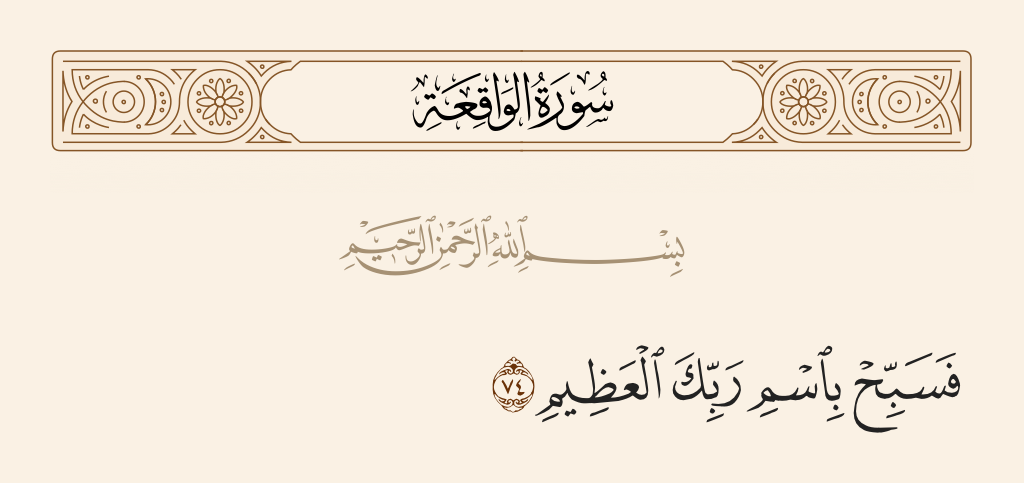 سُورَةُ الوَاقِعَةِ
بِسْمِ ٱللَّهِ ٱلرَّحْمَٰنِ ٱلرَّحِيمِ
فَسَبِّحْ بِٱسْمِ رَبِّكَ ٱلْعَظِيمِ ٧٤